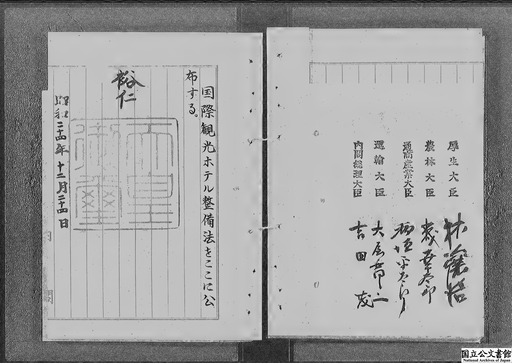 厚生大臣 林譲治
農林大臣 森幸太郎
通商産業大臣 稲垣平太郎
運輸大臣 大屋晋三
内閣総理大臣 吉田茂
国際観光ホテル整備法をここに公
布する。
裕仁
天皇御璽
昭和二十四年十二月二十四日
国立公文書館
National Archives of Japan